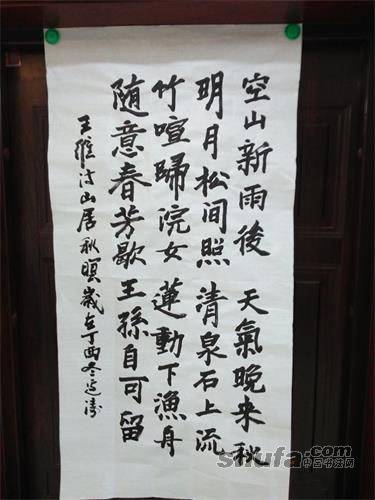 空山新雨後 天氣晚来秋
明月松间照 清泉石上流
竹喧歸浣女 蓮動下漁舟
随意春芳歇 王孫自可留
王維诗山居秋暝歲在丁酉冬延涛
shufa.com
中国书法网